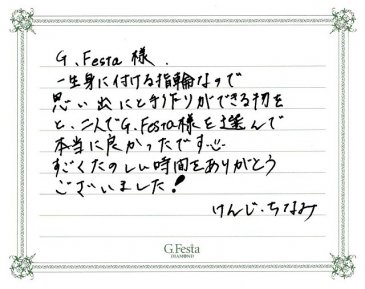 G.Festa 様.
一生身に付ける指輪なので
思い出にと手作りができる初を
と、二人でG.Festa様を選んで
本当に良かったです
すごくたのしい時間をありがとう
ございました!
けんじ・ちなみ
G.Festa
DIAMOND